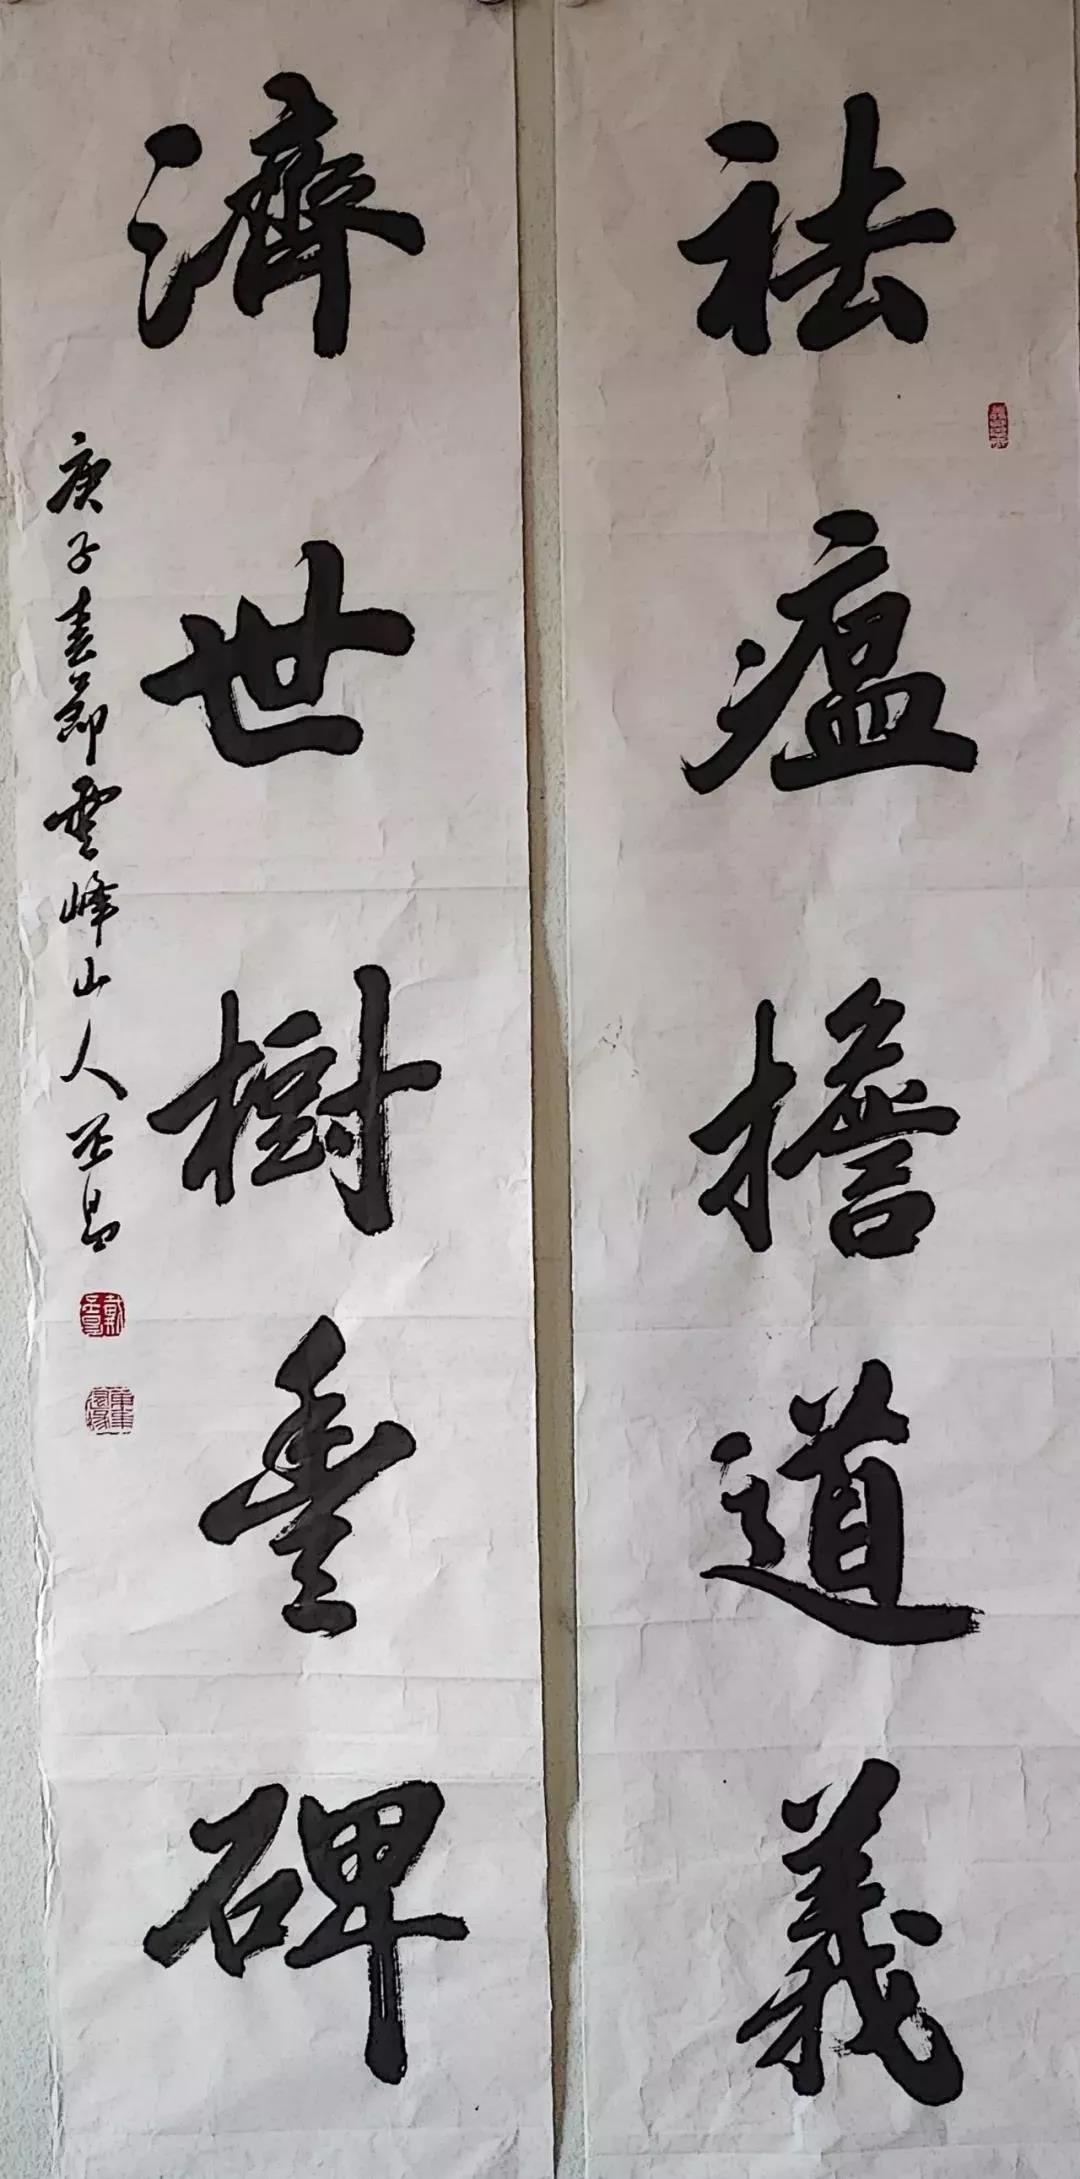 祛瘟擔道義
濟世樹豐碑
庚子春節雲峰山人正昌